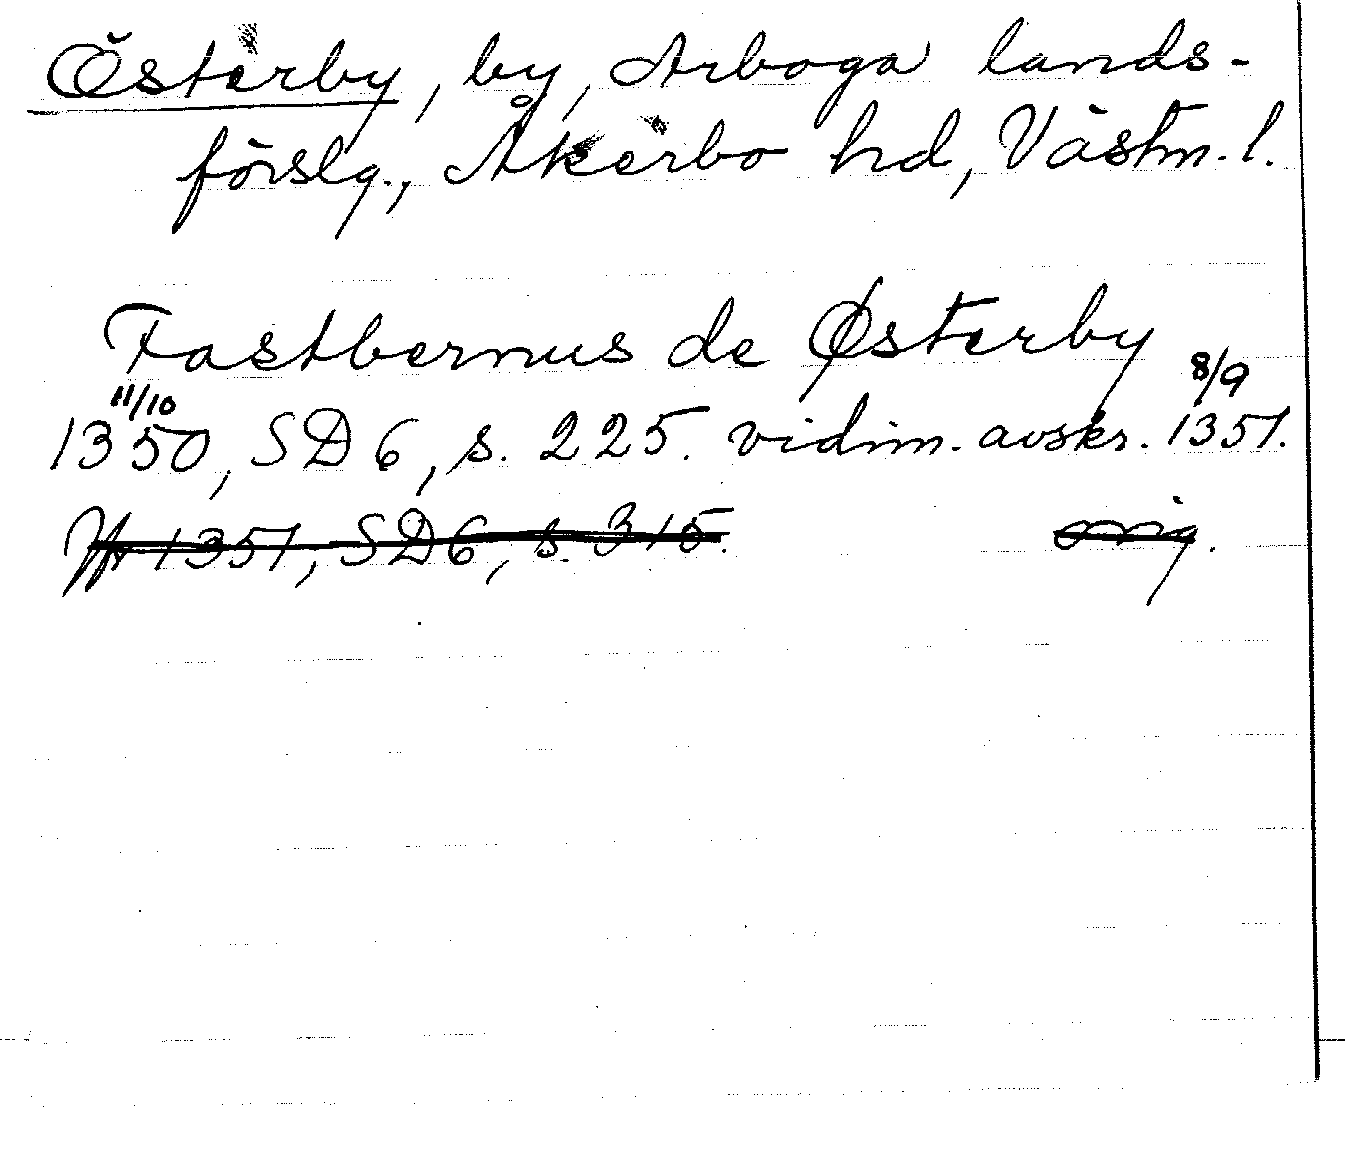 Österby, by, Arboga lands-
förslg., Åkerbo hd, Västm. l.
Fastbernus de Østerby
11/10 8/9
1350, SD 6, s. 225. vidim. avskr. 1351.
Jfr 1351, SD 6, s. 315. orig.